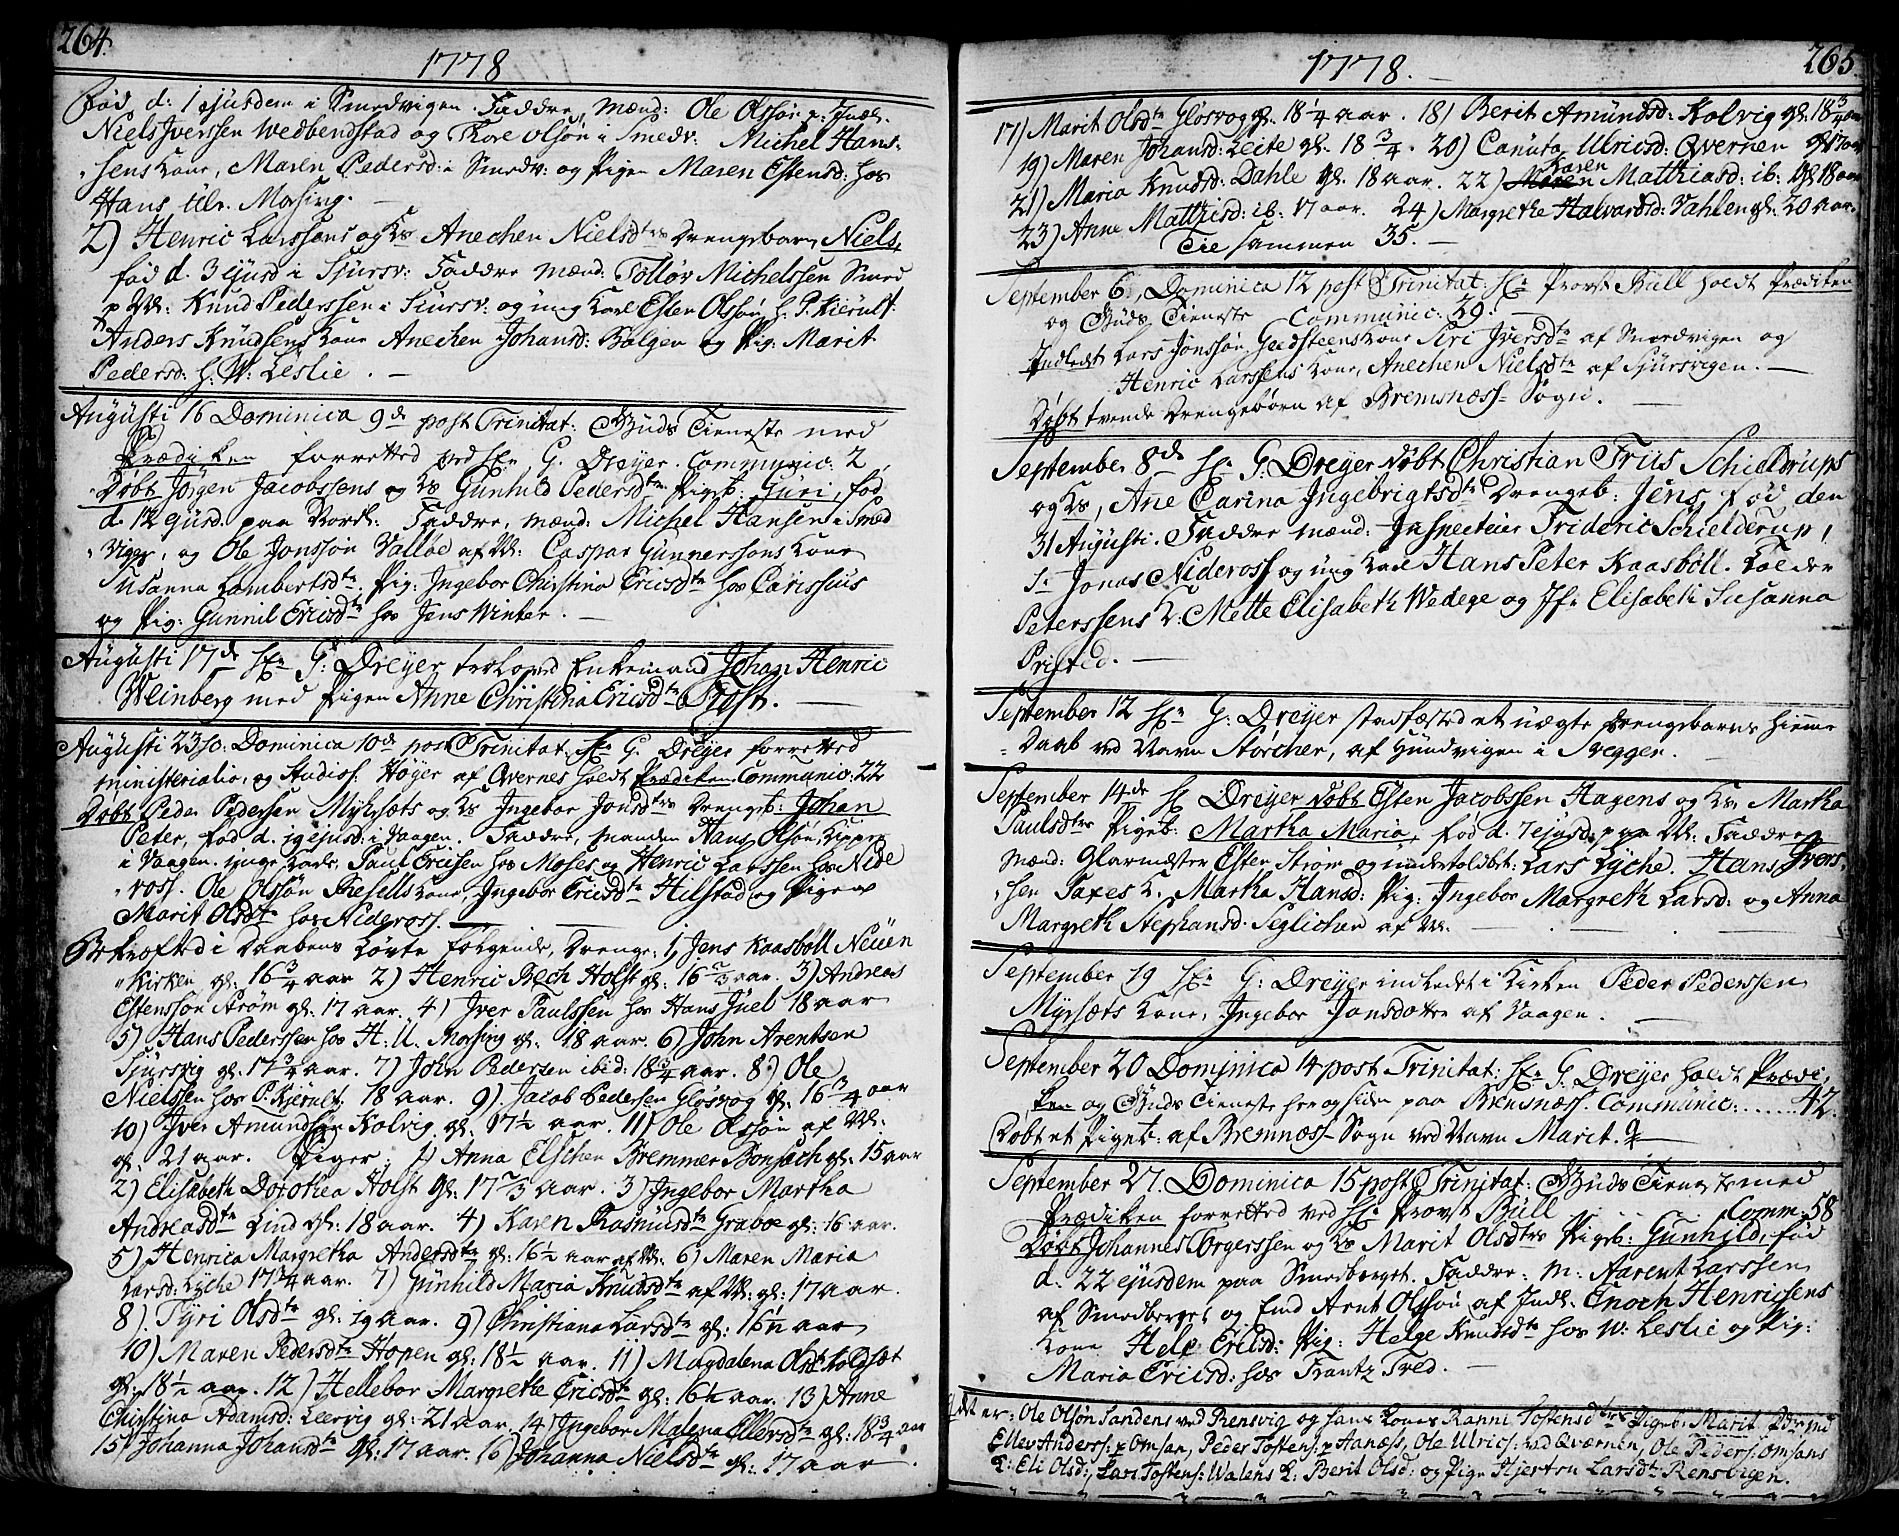 264.
1778
fød d: 1 ejusdem i Smedvigen. Faddre, Mænd: Ole Olssøn p: Indl.
Niels Iverssen Wedbendstad og Tore Olsøn i Smedv: Michel Hans-
sens Kone, Maren Pedersd: i Smedv: og Pigen Maren Estensd: hos
Hans Ulr. Møsing.
2) Henric Larssøns og Ks Anechen Nielsdtrs Drengebarn Niels,
fød d. 3 ejusd i Sjursv: Faddre Mænd: Tolløv Michelssen Smed
p W: Knud Pederssen i Siursv: og ung Karl Esten Olssøn h. P. Kierulf.
Anders Knudsens Kone Anechen Johansd: Bolgen og Pig: Marit
Pedersd: h. W: Leslie.
Augusti 16 Dominica 9de post Trinitat: Guds Tieneste med
Prædiken forretted ved Hr G. Dreyer. Communic: 2
Døbt Jørgen Jacobssens og Ks Gunhild Pedersdtrs Pigeb: Guri, fød
d. 12 ejusd. paa Nordl: Faddre, Mænd: Michel Hansen i Smed
vigen, og Ole Jonssøn Valløe af W: Caspar Gunnerssøns Kone
Susanna Lambertsdtr, Pig: Ingebor Christina Ericsdtr hos Carissius
og Pig: Gunnil Ericsdtr hos Jens Winter.
Augusti 17de Hr G: Dreyer troloved Enkemand Johan Henric
Weinberg med Pigen Anne Christina Ericsdtr Trost.
Augusti 23: Dominica 10de post Trinitat: Hr G. Dreyer forretted
ministerialia, og Studios: Høyer af Qvernes holdt Prædiken. Communic: 22
Døbt Peder Pedersen Myhrsæts og Ks Ingebor Jonsdtrs Drengeb: Johan
Peter, fød d. 19 ejusd: i Vaagen. Faddre, Manden Hans Olsøn
i Vaagen. unge Karle: Paul Ericsen hos Moses og Henric Larssen hos Nide
ross. Ole Olssøn Kone, Ingebor Ericsdtr Hilstad og Pigen
Marit Olsdtr hos Nideross.
Bekræfted i Daabens Løvte følgende, Drenge: 1, Jens Kaasbøll Neuen
Kirken gl: 16 3/4 aar 2) Henric Bech Holst gl: 16 2/3 aar. 3) Andreas
Estenssøn Strøm gl. 17 aar. 4) Iver Paulssen hos Hans Juel 18 aar
5) Hans Pederssen hos H. U. Møsing gl. 18 aar. 6) John Arentsen
Sjursvig gl. 17 3/4 aar. 7) John Pedersen ibid: 18 3/4 aar. 8) Ole
Nielssen hos P. Kjerulf, 18 aar. 9) Jacob Pedersen Gløsvog gl. 16 3/4 aar
10) Iver Amundsøn Kolvig gl. 17 1/2 aar. 11) Ole Olssøn af W.
gl. 21 aar. Piger: 1) Anna Elschen Bremmer Bonsach gl: 15 aar
2) Elisabeth Dorothea Holst gl. 17 2/3 aar. 3) Ingebor Martha
Andreasdtr Lind gl: 18 aar. 4) Karen Rasmusdtr Graboe gl: 16 aar.
5) Henrica Margretha Andersdtr gl: 16 1/2 aar af W: 6) Maren Maria
Larsd: Lyche 17 3/4 aar. 7) Gunhild Maria Knudsdtr af W: gl: 17 aar.
8) Tyri Olsdtr gl: 19 aar. 9) Christiana Larsdtr gl: 16 1/2 aar
10) Maren Pedersdtr Hopen gl: 18 1/2 aar. 11) Magdalena Olsd:
gl: 18 1/2 aar. 12) Hellebor Margrethe Ericsdtr gl: 16 1/2 aar. 13) Anne
Christina Adamsd: Leervig gl: 21 aar. 14) Ingebor Malena Ellersdtr gl: 18 3/4 aar
15) Johanna Johansdtr gl: 17 aar. 16) Johanna Nielsdtr gl: 17 aar.
1778.
265
17) Marit Olsdtr Gløsvog gl. 18 1/4 aar. 18) Berit Amundsd: Kolvig gl. 18 3/4 aar
19) Maren Johansd: Leite gl. 18 3/4. 20) Canuta Ulricsd: Qvernen gl 17 aar
21) Maria Knudsd: Dahle gl. 18 aar. 22) Karen Matthiasd: ib: gl 18 aar
23) Anne Matthisd: ib. 17 aar. 24) Margrethe Halvardsd: Vahlen gl: 20 aar.
Tilsammen 35.
September 6, Dominica 12 post Trinitat: Hr Provst Bull holdt Prædiken
og Guds Tieneste Communic: 29.
Indledt Lars Jonssøn Godsteens Kone Siri Iversdtr af Smedvigen og
Henric Larssens Kone, Anechen Nielsdtr af Sjursvigen.
Døbt tvende Drengebørn af Bremsnæss Sogn.
September 8de Hr G. Dreyer døbt Christian Friis Schieldrups
og Ks, Ane Carina Ingebrigtsdtr Drengeb: Jens, fød den
31 Augusti. Faddre Mænd: Inspecteur Frideric Schielderup,
Sr Jonas Nideross og ung Karl Hans Peter Kaasbøll. Tolder
Peterssens K: Mette Elisabeth Wedege og Jfr Elisabeth Susanna
Pristed.
September 12 Hr G: Dreyer stadfæsted et uægte Drengebarns hieme-
Daab ved Navn Størcher, af Hundvigen i Svegger.
September 14de Hr Dreyer døbt Esten Jacobssen Hagens og Ks Martha
Paulsdtrs Pigeb: Martha Maria, fød d. 7 ejusd: paa W: Faddre
Mænd: Glarmæster Esten Strøm og undertoldbt: Lars Lyche. Hans Ivers-
sen Saxes K. Martha Hansd: Pig: Ingebor Margreth Larsd: og Anna
Margreth Stephansd: Seglichen af W.
September 19 Hr G: Dreyer indledet i Kirken Peder Pederssen
Myrsæts Kone, Ingebor Jonsdotter af Vaagen.
September 20 Dominica 14 post Trinitat: Hr G: Dreyer holdt Prædi-
ken og Guds Tieneste her og siden paa Bremsnæss. Communic: ...... 42.
Døbt et Pigeb: af Bremnæss Sogn ved Navn Marit.
September 27. Dominica 15 post Trinitat: Guds Tieneste med
Prædiken forretted ved Hr Provst Bull Comm: 58
Døbt Johannes Ørgerssen og Ks Marit Olsdtrs Pigeb: Gunhild, fød
d. 22 ejusdem paa Smedberget. Faddre: M: Aarent Larssen
af Smedberget og Emd Arnt Olssøn af Indl. Enoch Henricsens
Kone Hele Ericsd: Pig: Helge Knudsdtr hos W: Leslie og Pig:
Maria Ericsd: hos Frantz Fred.
Ole Olsøn Sandens ved Rensvig og hans Kones Ranni Tostensdtrs Pigeb: Marit
Ellev Anderss: p Omsan, Peder Tostens: p Aanæss, Ole Ulrics: ved Qværnen, Ole Peders: Omsans
K: Eli Olsd:, Lars Tostens: Walens K: Berit Olsd: og Pige Kjersten Larsdtr Rensvigen.